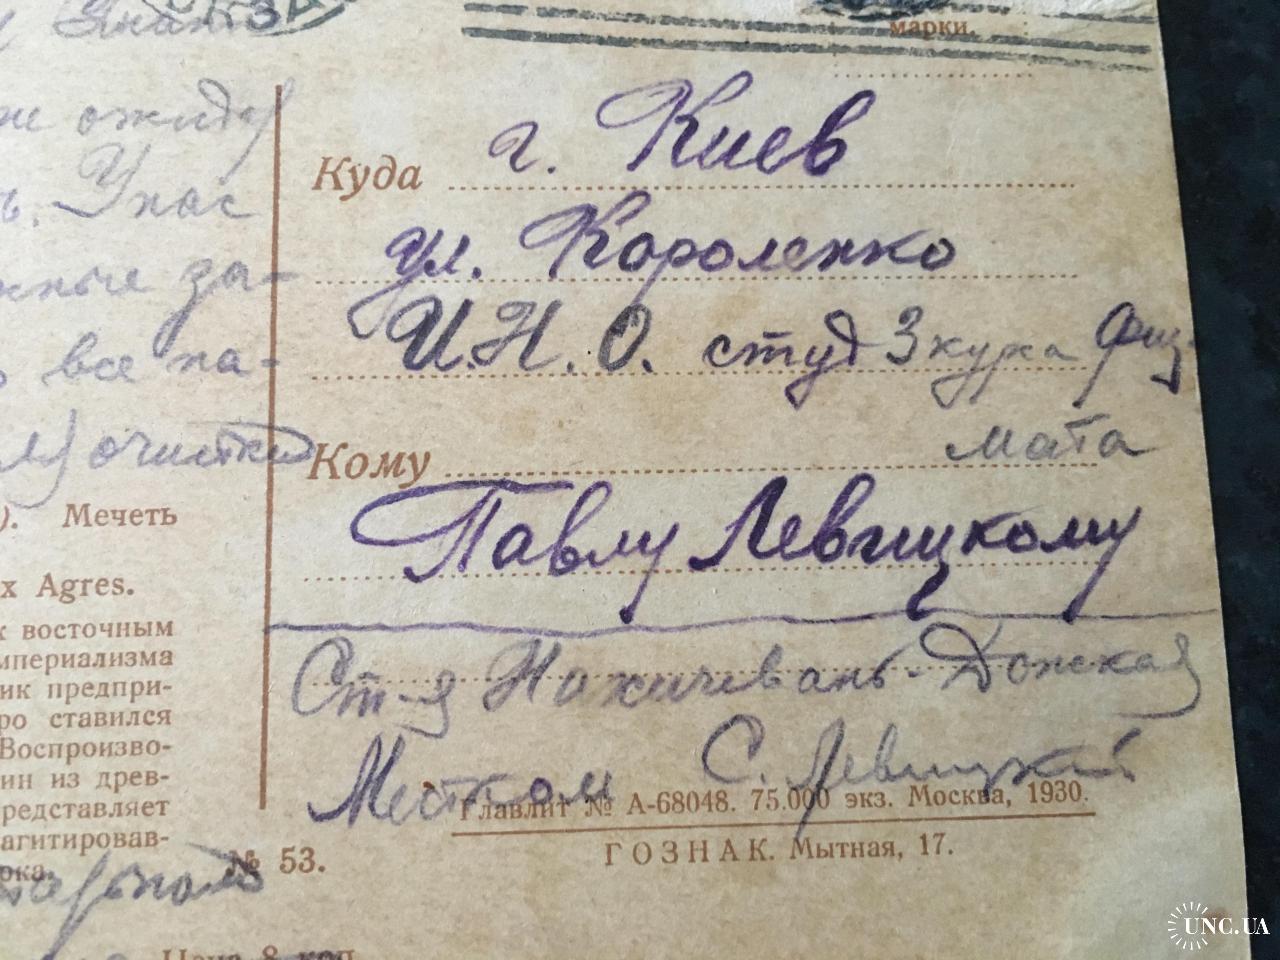 марки.
же ожида
Куда г. Киев
ь. У нас
ул. Короленко
жные за-
И.Н.О. студ 3 курса Физ-
все па-
мата
очистки
Кому
Павлу Левицкому
). Мечеть
х Agres.
х восточным
мпериализма
ик предпри-
ро ставился
Воспроизво-
ин из древ-
редставляет
агитировав-
рка. № 53.
Ст-я Нахичевань-Донская
Местком С. Левицкий
Главлит № А-68048. 75.000 экз. Москва, 1930.
ГОЗНАК. Мытная, 17.
Цена 8 коп.
UNC.UA